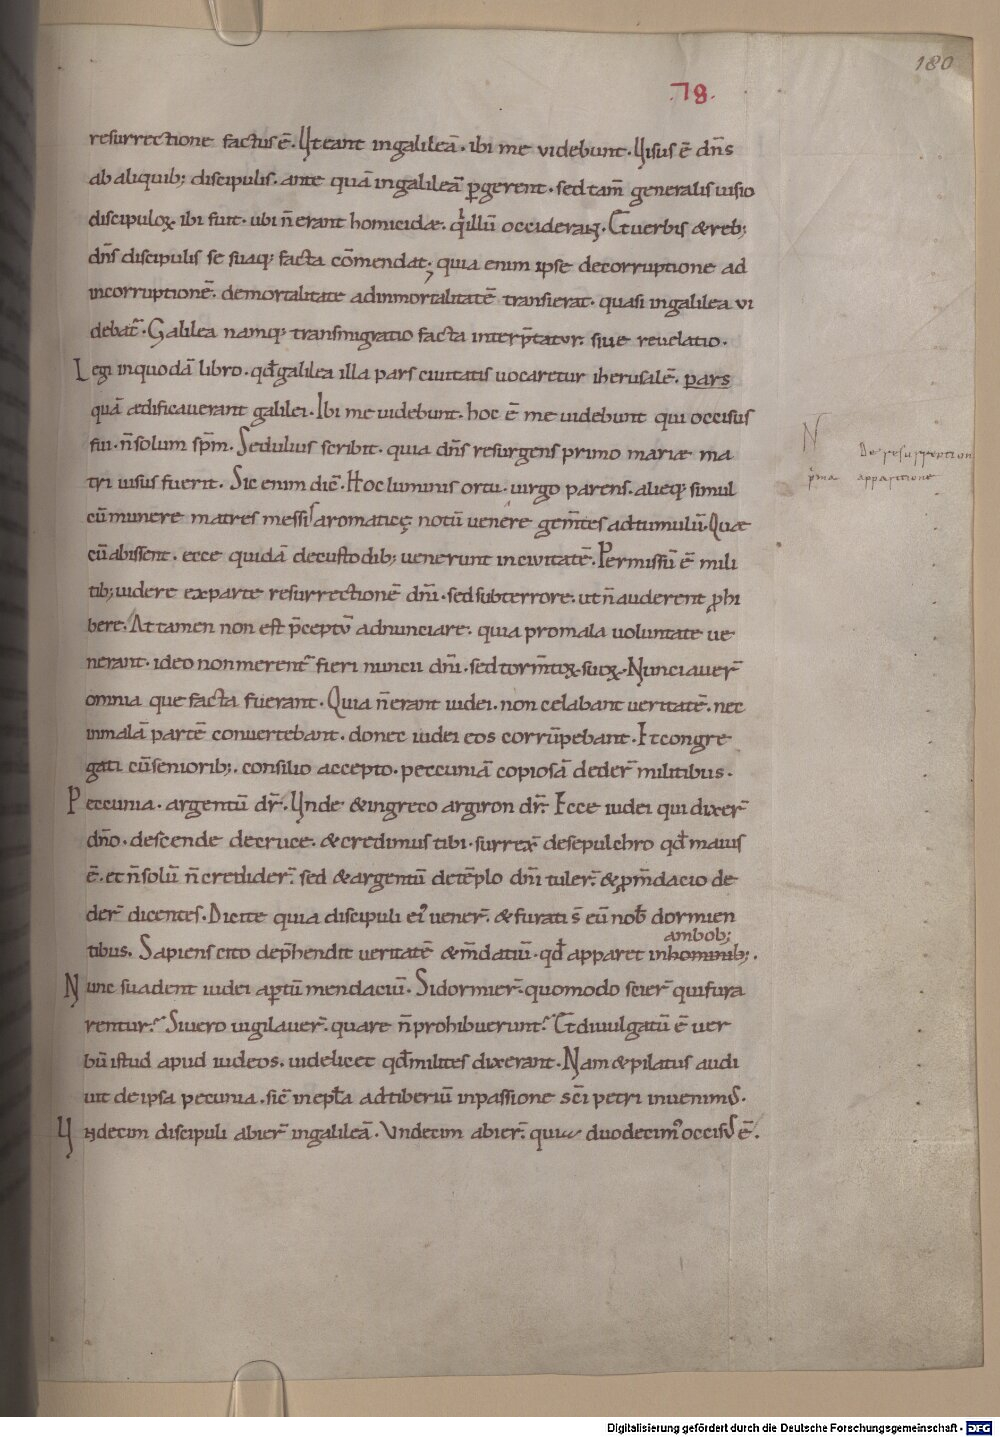 180
.78.
resurrectione factus ē. Ut eant in galileā. ibi me videbunt. Uisus ē dn̄s
ab aliquib; discipulis. ante quā in galileā ꝑgerent. sed tam̄ generalis uisio
discipuloꝝ. ibi fuit. ubi n̄ erant homicidæ. illū occiderant. Et uerbis & reb;
dn̄s discipulis se suaq; facta cōmendat. quia enim ipse de corruptione ad
incorruptionē. de mortalitate ad inmortalitatē transierat. quasi in galilea vi
debat᷑. Galilea namq; transmigratio facta interp̄tatur. siue reuelatio.
Legi in quodā libro. qd̄ galilea illa pars ciuitatis uocaretur iherusalē. pars
quā ædificauerant galilei. Ibi me uidebunt. hoc ē me uidebunt qui occisus
fui. n̄ solum sp̄m. Sedulius scribit. quia dn̄s resurgens primo mariæ ma
tri uisus fuerit. Sic enim dic̄. Hoc luminis ortu. uirgo parens. alieq; simul
cū munere matres messis aromaticę notū uenere gem̄tes ad tumulū. Quæ
cū abissent. ecce quidā de custodib; uenerunt in civitatē. Permissū ē mili
tib; uidere ex parte resurrectionē dn̄i. sed sub terrore. ut n̄ auderent ꝓhi
bere. Attamen non est p̄ceptū adnunciare. quia pro mala uoluntate ue
nerant. ideo non merent᷑ fieri nuncii dn̄i. sed torm̄toꝝ suoꝝ. Nunciauer̄
omnia que facta fuerant. Quia n̄ erant iudei. non celabant ueritatē. nec
in malā partē conuertebant. donec iudei eos corrūpebant. Et congre
gati cū seniorib;. consilio accepto. peccuniā copiosā deder̄ militibus.
Peccunia. argentū dr̄. Unde & in greco argiron dr̄. Ecce iudei qui dixer̄
dn̄o. descende de cruce. & credimus tibi. surrex̄ de sepulchro qd̄ maius
ē. et n̄ solū n̄ credider̄. sed & argentū de tēplo dn̄i tuler̄. & ꝓ m̄dacio de
der̄ dicentes. Dicite quia discipuli ei᷒ uener̄. & furati s̄ eū nob̄ dormien
ambob;
tibus. Sapiens cito dep̄hendit ueritatē & m̄datiū. qd̄ apparet in hominib;.
Nunc suadent iudei aꝑtū mendaciū. Si dormier̄. quomodo scier̄ qui fura
rentur. Si uero uigilauer̄. quare n̄ prohibuerunt. Et diuulgatū ē uer
bū istud apud iudeos. uidelicet qd̄ milites dixerant. Nam & pilatus audi
uit de ipsa pecunia. sic̄ in epl̄a ad tiberiū in passione sc̄i petri inuenim᷒.
Undecim discipuli abier̄ in galileā. Vndecim abier̄. quia duodecim᷒ occisus ē.
N
De resurrection
p̄ma apparitione
Digitalisierung gefördert durch die Deutsche Forschungsgemeinschaft - DFG